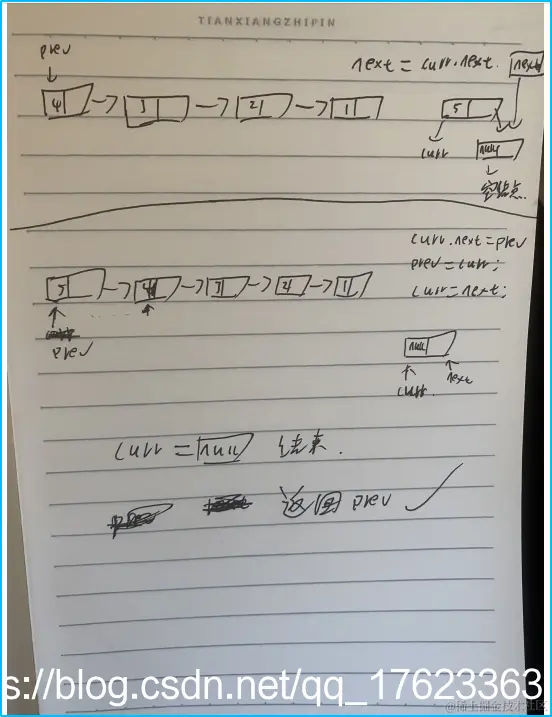 TIANXIANGZHIPIN
prev
next = curr.next.
next
4 3 2 1 5
curr
null
空结点.
curr.next=prev
prev=curr;
curr=next;
5 4 3 2 1
prev
null
curr next
curr = null 结束.
返回 prev
s://blog.csdn.net/qq_17623363
@稀土掘金技术社区